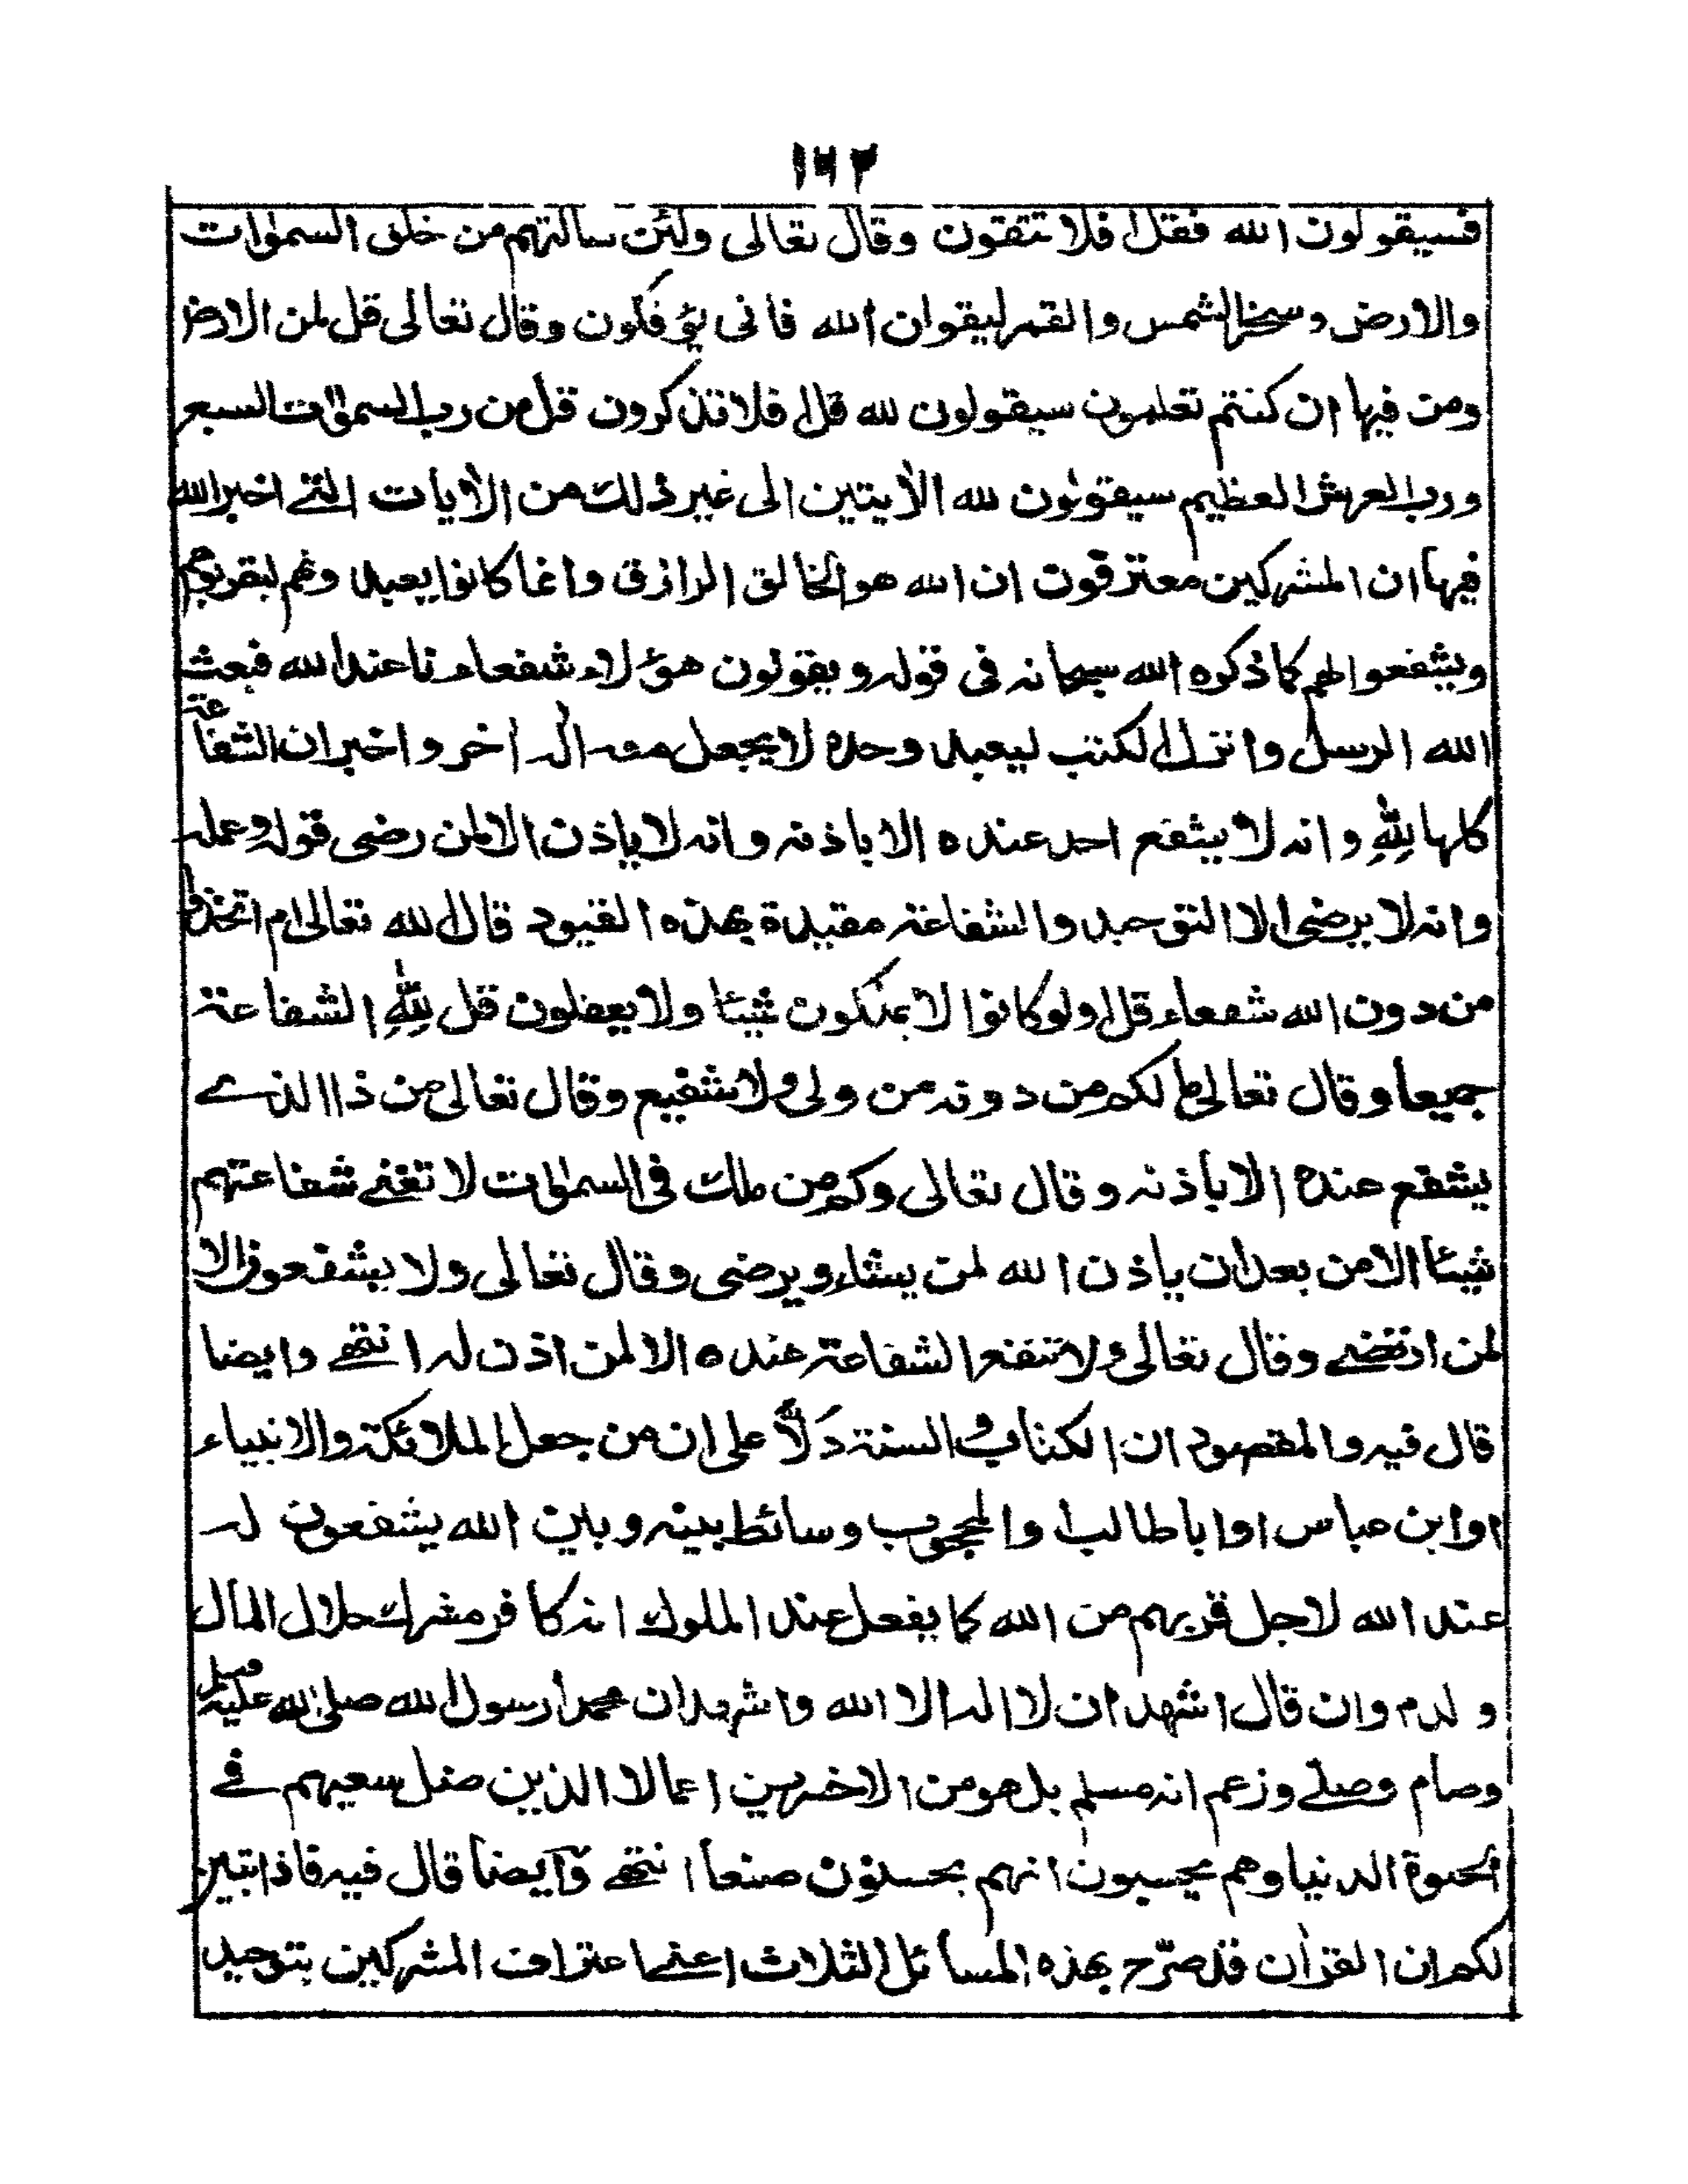 ١٦٢
فسيقولون الله فقل افلا تتقون وقال تعالى ولئن سالتهم من خلق السمٰوات
والارض وسخر الشمس والقمر ليقولن الله فانى يؤفكون وقال تعالى قل لمن الارض
ومن فيها ان كنتم تعلمون سيقولون لله قل افلا تذكرون قل من رب السمٰوات السبع
ورب العرش العظيم سيقولون لله الاٰيتين الى غير ذلك من الاٰيات التے اخبر الله
فيها ان المشركين معترفون ان الله هو الخالق الرازق وانما كانوا يعبدونهم ليقربوهم
ويشفعوا لهم كما ذكره الله سبحانه فى قوله ويقولون هؤلاء شفعاءنا عند الله فبعث
الله الرسل وانزل الكتب ليعبد وحده لا يجعل معه الٰه اٰخر واخبر ان الشفاعة
كلها لِلّٰهِ وانه لا يشفع احد عنده الا باذنه وانه لا ياذن الا لمن رضى قوله وعمله
وانه لا يرضى الا التوحيد والشفاعة مقيدة بهذه القيود قال الله تعالى ام اتخذوا
من دون الله شفعاء قل اولو كانوا لا يملكون شيئا ولا يعقلون قل لِلّٰهِ الشفاعة
جميعا وقال تعالى ما لكم من دونه من ولى ولا شفيع وقال تعالى من ذا الذے
يشفع عنده الا باذنه وقال تعالى وكم من ملك فى السمٰوات لا تغنے شفاعتهم
شيئا الا من بعد ان ياذن الله لمن يشاء ويرضى وقال تعالى ولا يشفعون الا
لمن ارتضے وقال تعالى ولا تنفع الشفاعة عنده الا لمن اذن له انتهے وايضا
قال فيه والمقصود ان الكتاب والسنة دَلَّا على ان من جعل الملائكة والانبياء
او ابن عباس او ابا طالب او المحجوب وسائط بينه وبين الله يشفعون له
عند الله لاجل قربهم من الله كما يفعل عند الملوك انه كافر مشرك حلال المال
والدم وان قال اشهد ان لا اله الا الله واشهد ان محمدا رسول الله صلى الله عليه وسلم
وصام وصلے وزعم انه مسلم بل هو من الاخسرين اعمالا الذين ضل سعيهم فے
الحيوة الدنيا وهم يحسبون انهم يحسنون صنعا انتهے وايضا قال فيه فاذا تبين
لكم ان القرآن قد صرّح بهذه المسائل الثلاث اعنے اعتراف المشركين بتوحيد